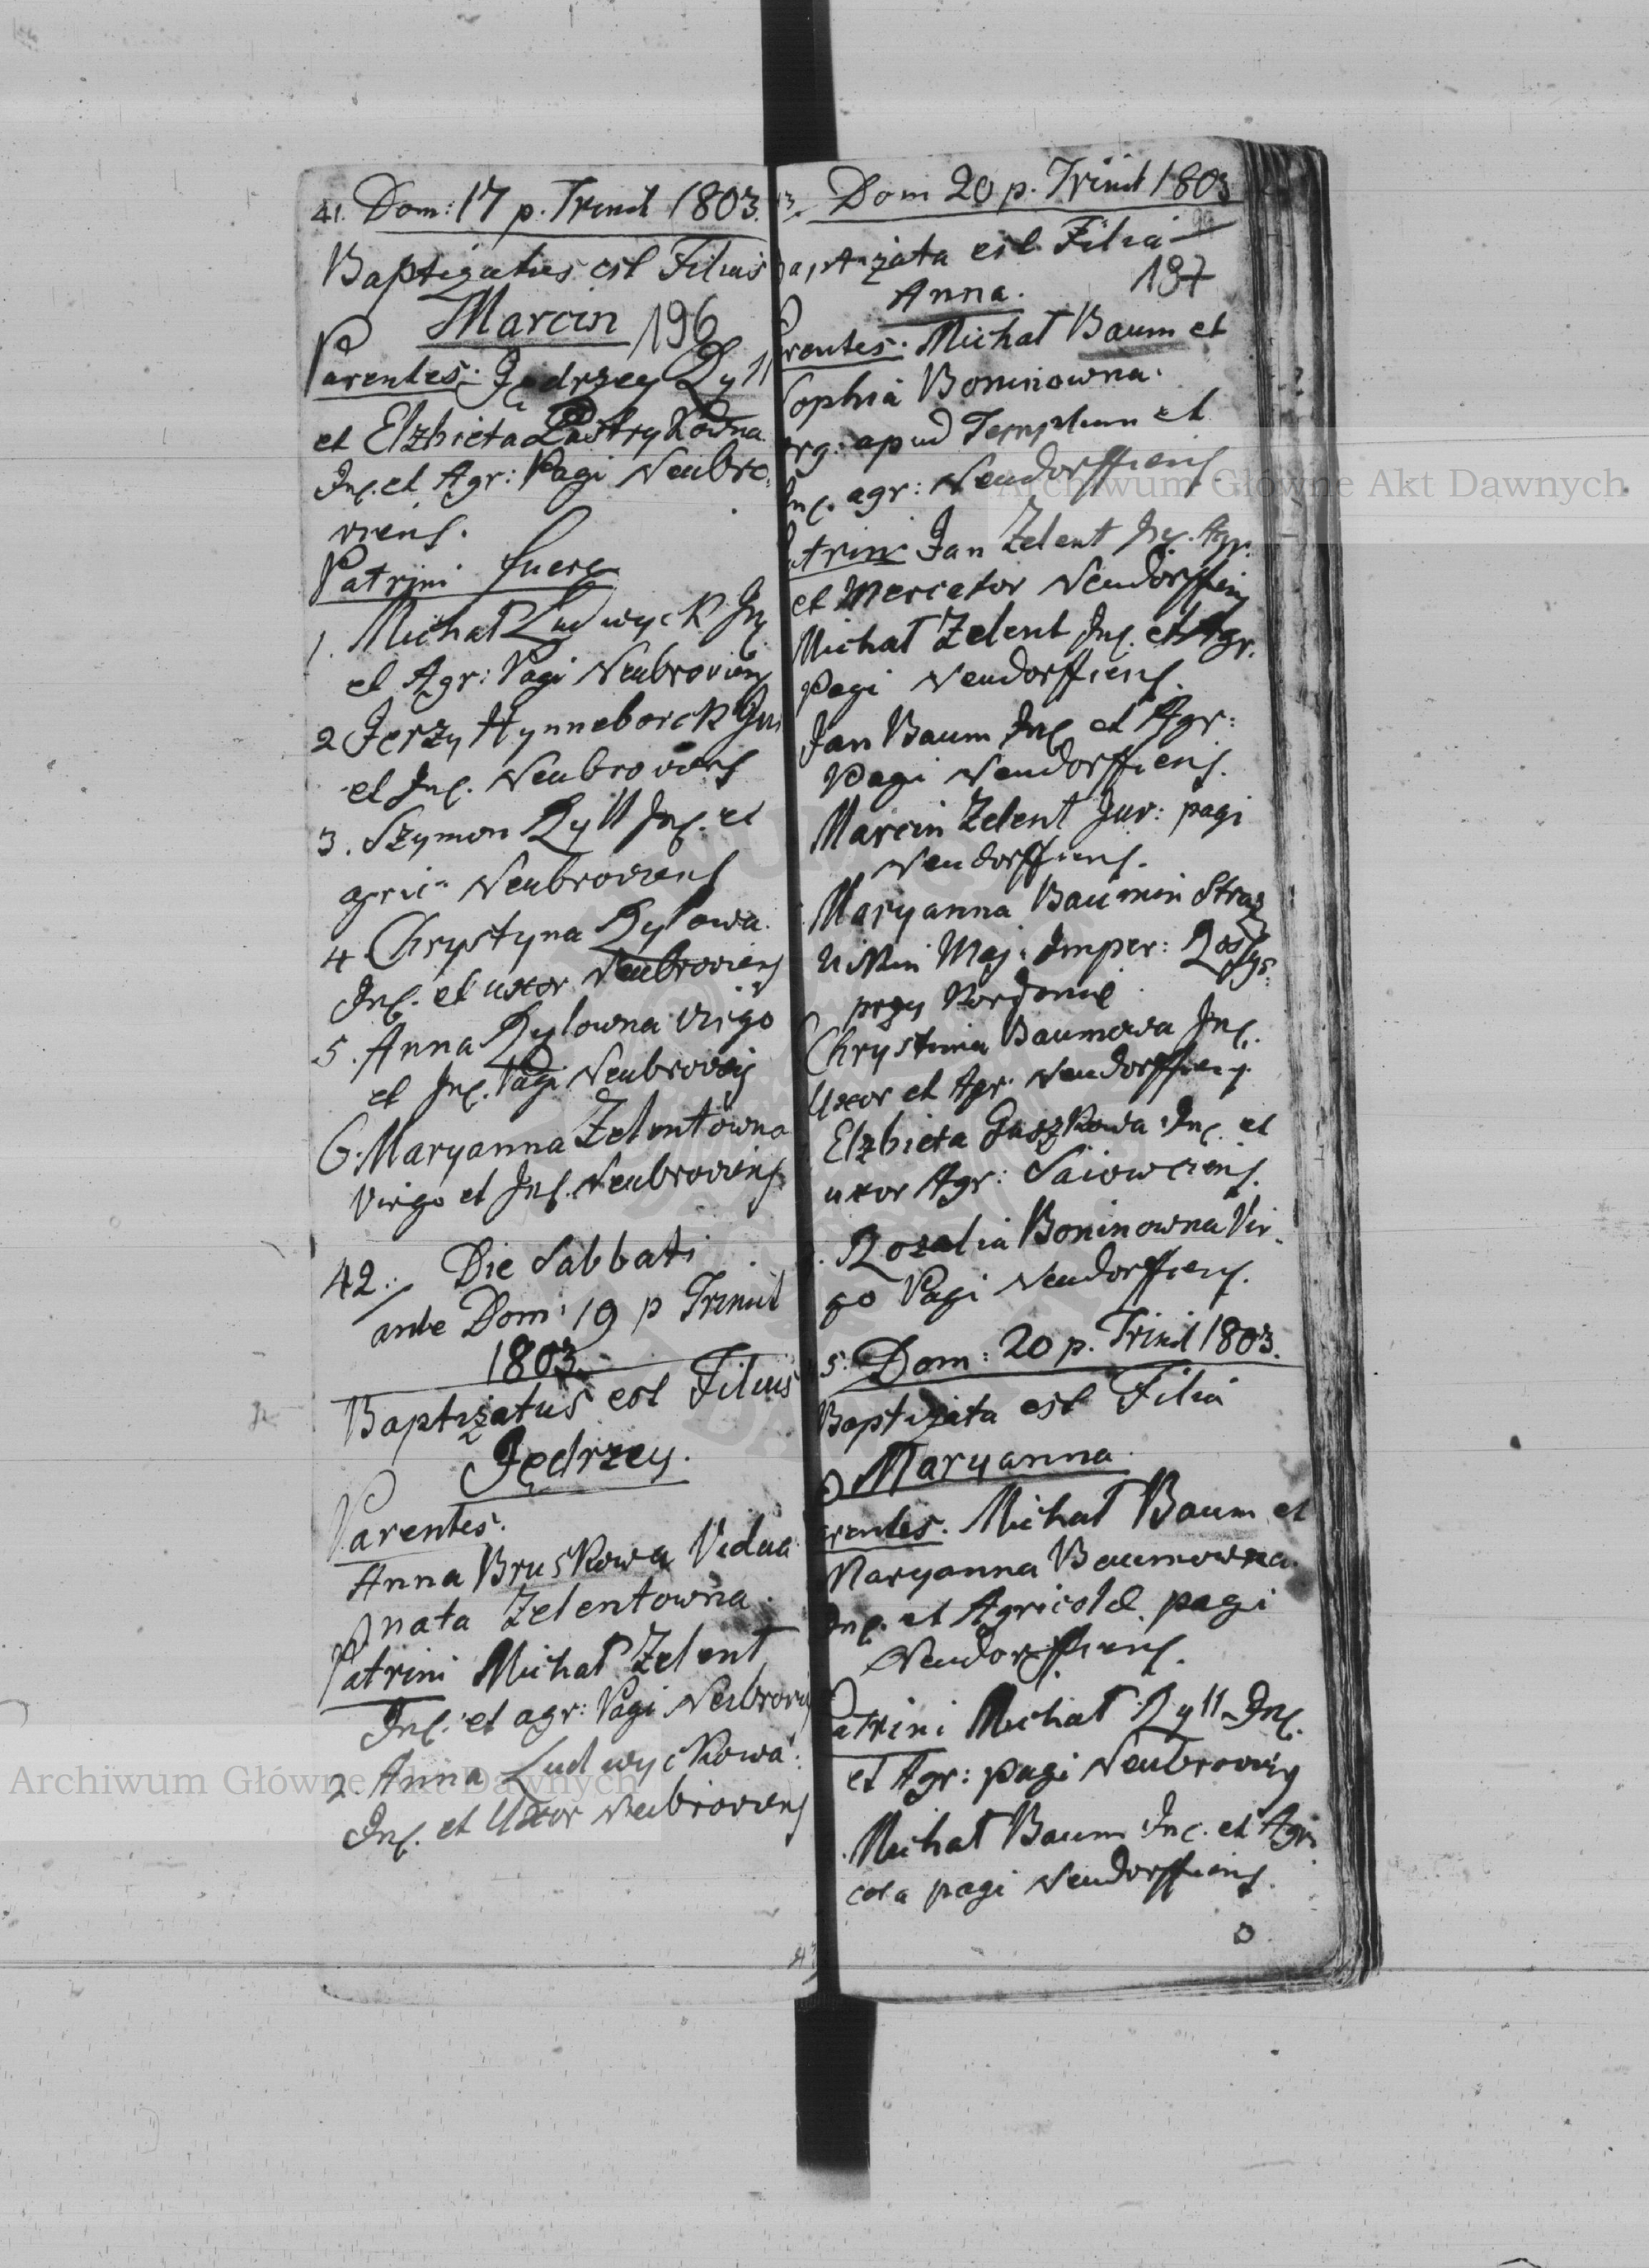 41. Dom: 17 p. Trinit 1803.
Baptizatus est Filius
Marcin 196
Parentes: Jędrzey Ryll
et Elzbieta
Inc. et Agr: Pagi Neubro,
viens.
Patrini fuere
1. Michał Ludwyck Inc
et Agr: Pagi Neubroviens
2 Jerzy Hynneborck Juv
et Inc. Neubroviens
3. Szymon Ryll Inc. et
agric. Neubroviens
4. Chrystyna Rylowa.
Inc. et uxor Neubroviens
5. Anna Rylowna virgo
et Inc. Pagi Neubroviens
6. Maryanna Zelentowna
Virgo et Inc. Neubroviens
42. Die Sabbati
ante Dom: 19 p Trinit
1803.
Baptizatus est Filius
Jędrzey.
Parentes.
Anna Bruskowa Vidua
nata Zelentowna.
Patrini Michał Zelent
Inc. et agr: Pagi Neubrovi
2. Anna Ludwyckowa.
Inc. et Uxor Neubroviens
3. Dom 20 p. Trinit 1803
aptizata est Filia
Anna. 197
rentes: Michał Baum et
Sophia Boninowna.
org: apud Templum et
Inc. agr: Neudorffiens.
atrini Jan Zelent Inc. Agr.
et Mercator Neudorffiens
Michał Zelent Inc. et Agr.
Pagi Neudorffiens.
Jan Baum Inc et Agr:
Pagi Neudorffiens.
Marcin Zelent Juv: pagi
Neudorffiens.
Maryanna Baumin Straz
nikin Maj: Imper: Rossys:
przy Kordonie
Chrystina Baumowa Inc.
Uxor et Agr. Neudorffiens.
Elzbieta Guszkowa Inc. et
uxor Agr: Saiowciens.
Rozalia Boninowna Vir-
go Pagi Neudorffiens.
5. Dom: 20 p. Trinit 1803.
Baptizata est Filia
Maryanna.
arentes. Michał Baum et
Maryanna Baumowna.
Inc. et Agricolæ pagi
Neudorffiens.
Patrini Michał Ryll Inc.
et Agr: pagi Neubroviens
Michał Baum Inc. et Agri
cola pagi Neudorffiens.
Archiwum Główne Akt Dawnych
Archiwum Główne Akt Dawnych